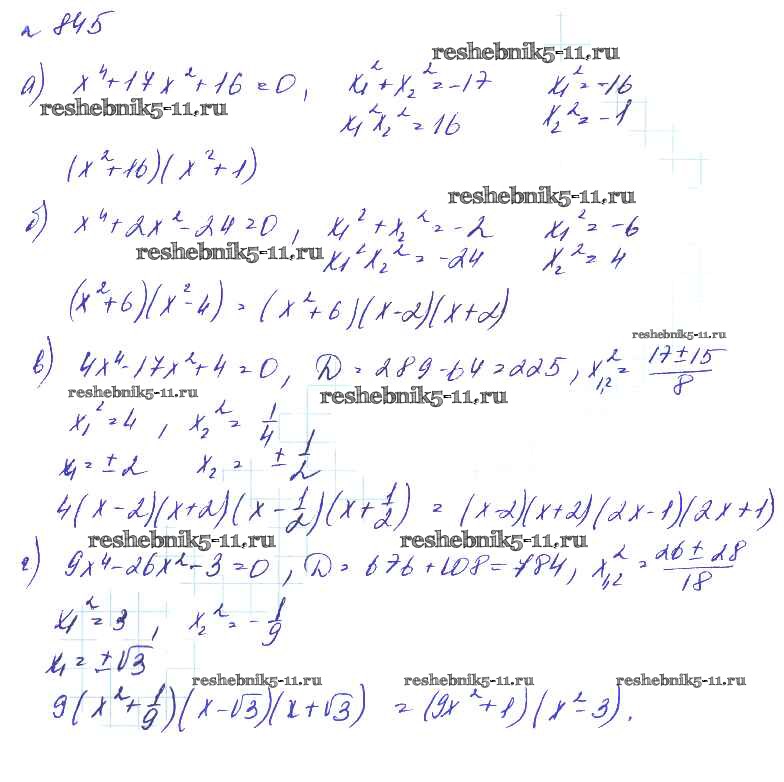 № 845
reshebnik5-11.ru
а) x⁴+17x²+16=0, x₁²+x₂²=-17 x₁²=-16
reshebnik5-11.ru
x₁²x₂²=16 x₂²=-1
(x²+16)(x²+1)
reshebnik5-11.ru
б) x⁴+2x²-24=0, x₁²+x₂²=-2 x₁²=-6
reshebnik5-11.ru x₁²x₂²=-24 x₂²=4
(x²+6)(x²-4)=(x²+6)(x-2)(x+2)
reshebnik5-11.ru
в) 4x⁴-17x²+4=0, D=289-64=225, x₁,₂²=(17±15)/8
reshebnik5-11.ru reshebnik5-11.ru
x₁²=4, x₂²=1/4
x₁=±2 x₂=±1/2
4(x-2)(x+2)(x-1/2)(x+1/2)=(x-2)(x+2)(2x-1)(2x+1)
reshebnik5-11.ru reshebnik5-11.ru
г) 9x⁴-26x²-3=0, D=676+108=784, x₁,₂²=(26±28)/18
x₁²=3, x₂²=-1/9
x₁=±√3
reshebnik5-11.ru reshebnik5-11.ru reshebnik5-11.ru
9(x²+1/9)(x-√3)(x+√3)=(9x²+1)(x²-3).